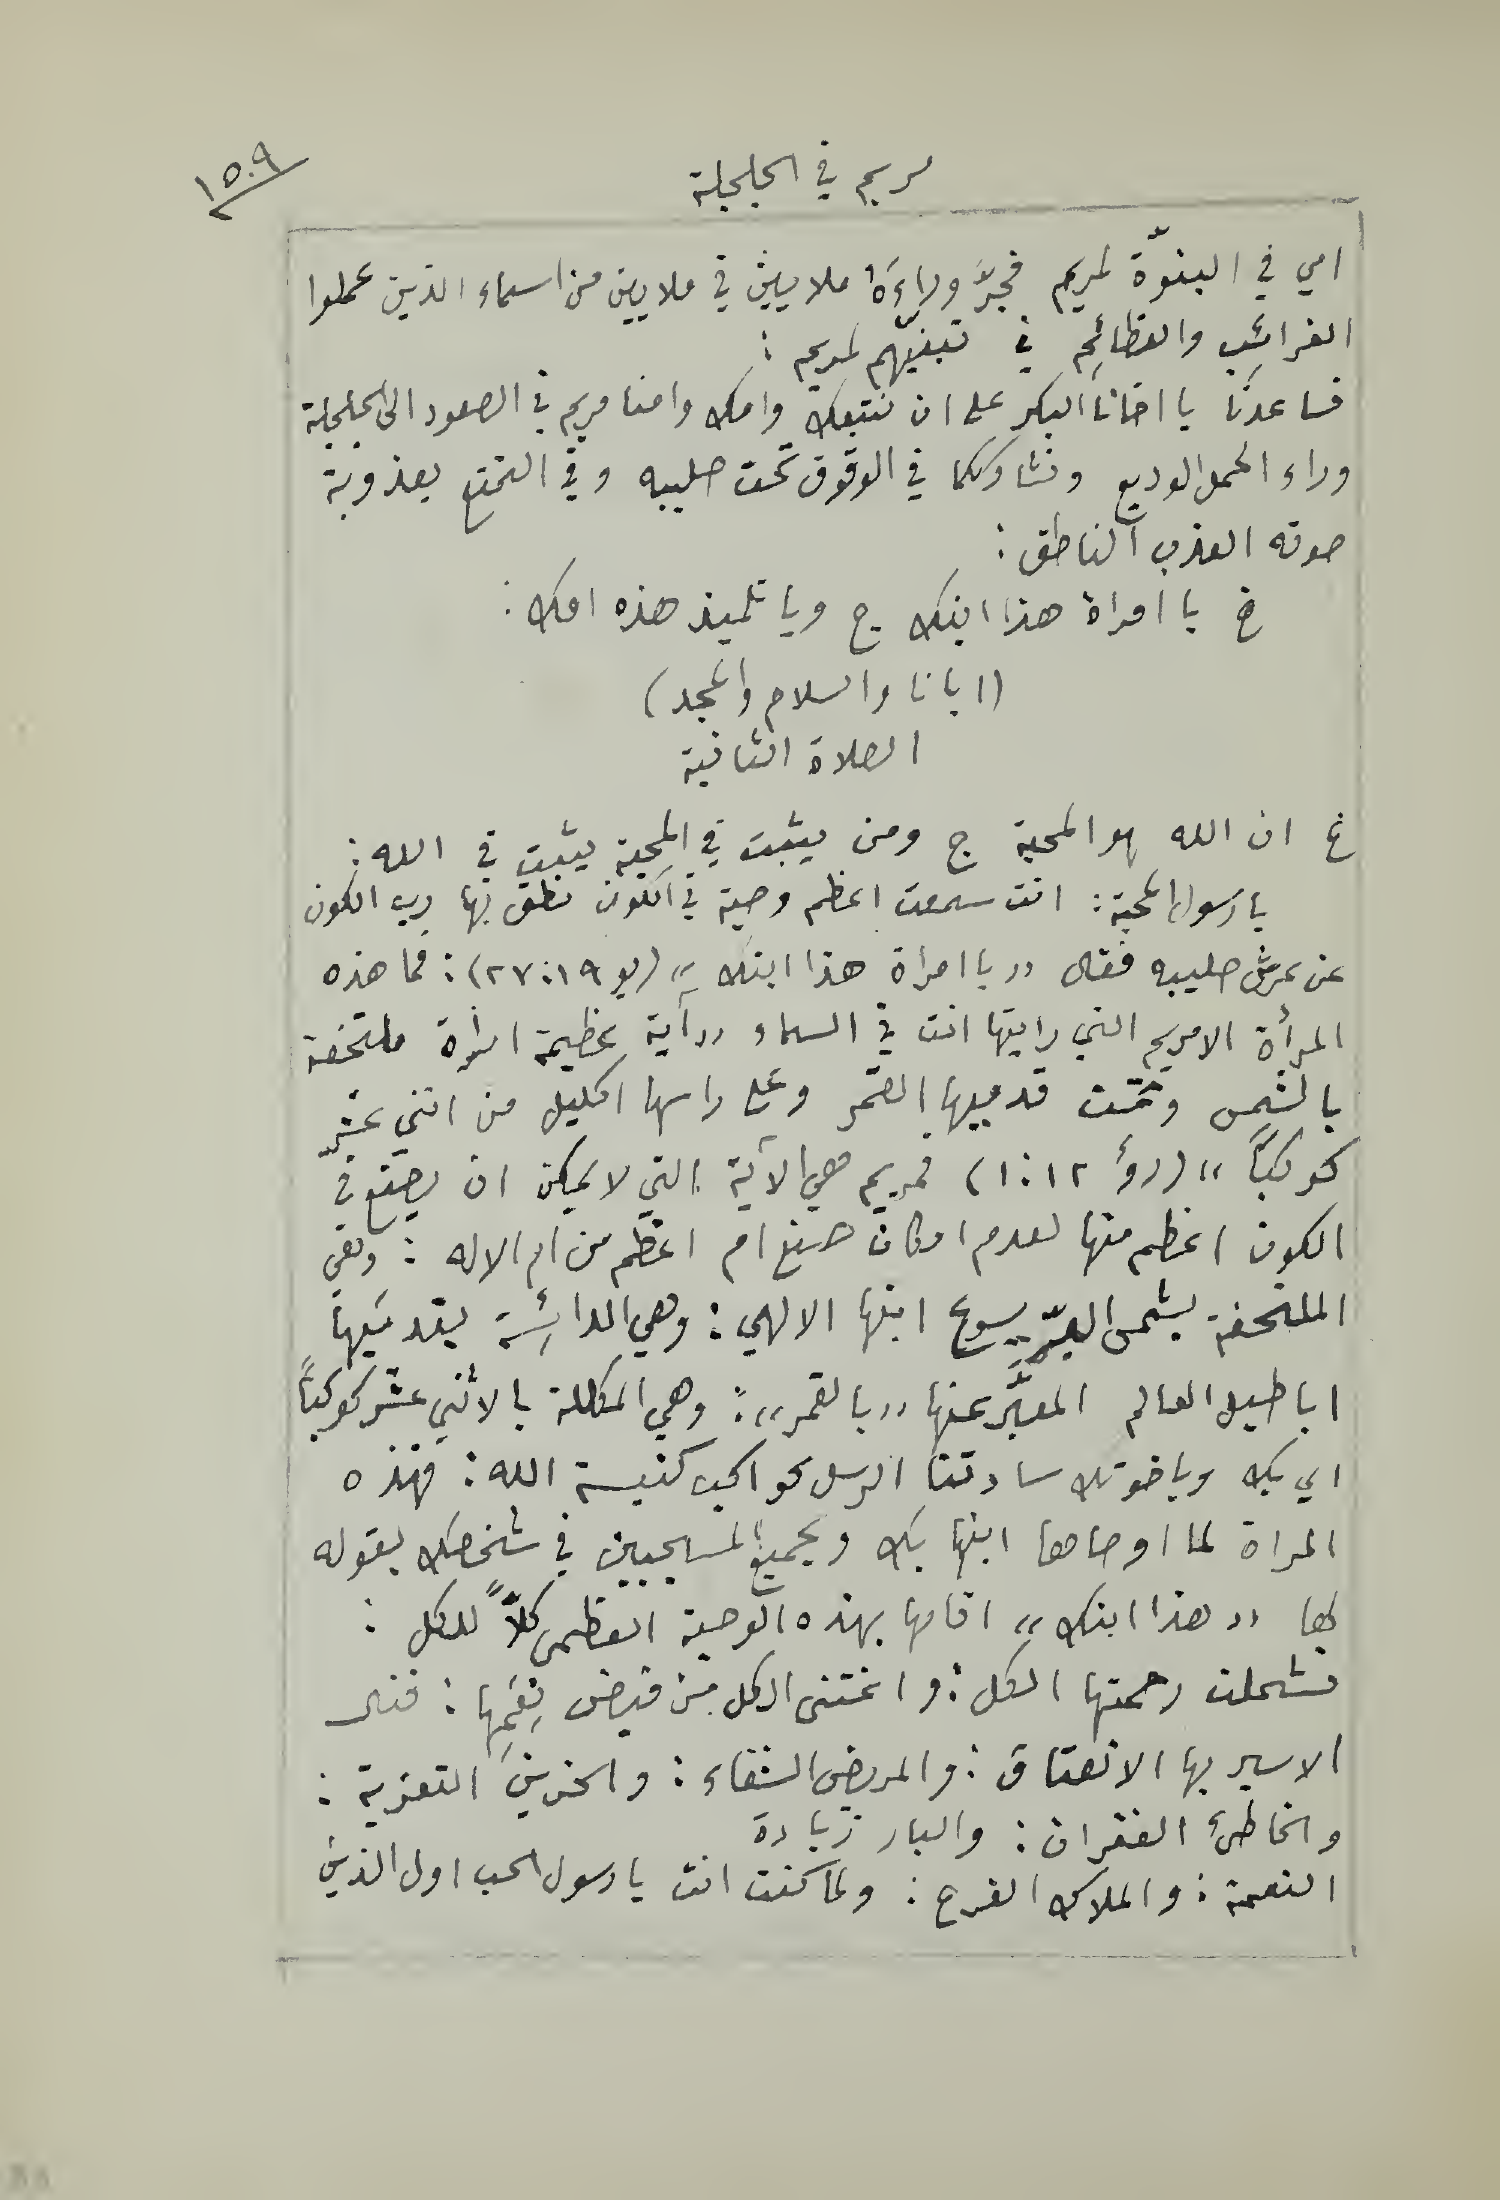 ١٥٠٩
مريم في الجلجلة
امي في البنوّة لمريم فجرَّ وراءَهُ ملايين في ملايين من اسماء الذين عملوا
الغرائب والعظائم في تبنّيهم لمريم :
فساعدنا يا اخانا البكر على ان نتبعك وامك وامنا مريم في الصعود الى الجلجلة
وراء الحمل الوديع ونشارككما في الوقوف تحت صليبه وفي التمتع بعذوبة
صوته العذب الناطق :
خ يا امراة هذا ابنك ج ويا تلميذ هذه امك :
(ابانا والسلام والمجد)
الصلاة الثانية
خ ان الله هو المحبة ج ومن يثبت في المحبة يثبت في الله :
يا رسول المحبة : انت سمعت اعظم وصية في الكون نطق بها رب الكون
عن عرش صليبه فقال «يا امراة هذا ابنك» (يو ١٩:٢٧) : فما هذه
المرأة الا مريم التي رايتها انت في السماء «آية عظيمة امرأة ملتحفة
بالشمس وتحت قدميها القمر وعلى راسها اكليل من اثني عشر
كوكبًا» (رؤ ١٢:١) فمريم هي الآية التي لا يمكن ان يصنع في
الكون اعظم منها لعدم امكان صنع ام اعظم من ام الاله : وهي
الملتحفة بشمس البرّ يسوع ابنها الالهي : وهي الدائسة بقدميها
اباطيل العالم المعبَّر عنها «بالقمر» : وهي المكللة بالاثني عشر كوكبًا
اي بك وباخوتك سادتنا الرسل كواكب كنيسة الله : فهذه
المراة لما اوصاها ابنها بك وبجميع المسيحيين في شخصك بقوله
لها «هذا ابنك» اقامها بهذه الوصية العظمى كلًّا للكل :
فشملت رحمتها الكل : واغتنى الكل من فيض نِعَمِها : فنال
الاسير بها الانعتاق : والمريض الشفاء : والحزين التعزية :
والخاطئ الغفران : والبار زيادة
النعمة : والملاك الفرح : ولما كنت انت يا رسول الحب اول الذين